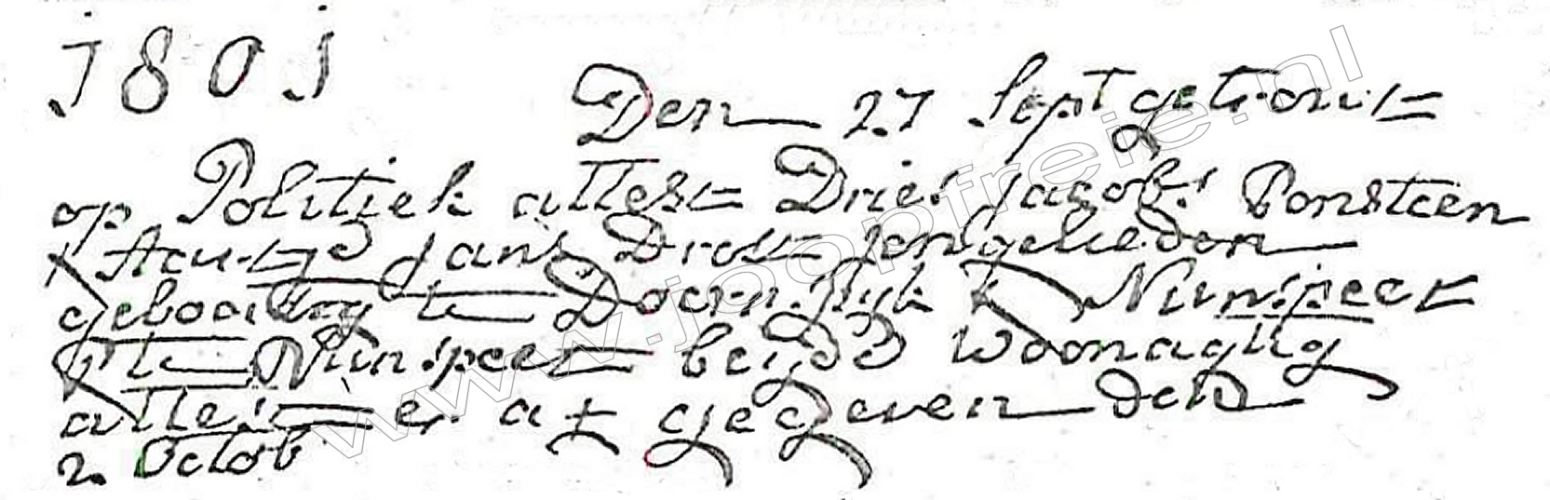 1801
Den 27 Sept getrout
op Politiek attest Dries Jacobs Ponsteen
& Aeltje Jans Drost jongelieden
geboortig te Doornspijk & Nunspeet
& te Nunspeet beijde woonagtig
attest er af gegeven den
2 Octob
www.joopfreie.nl